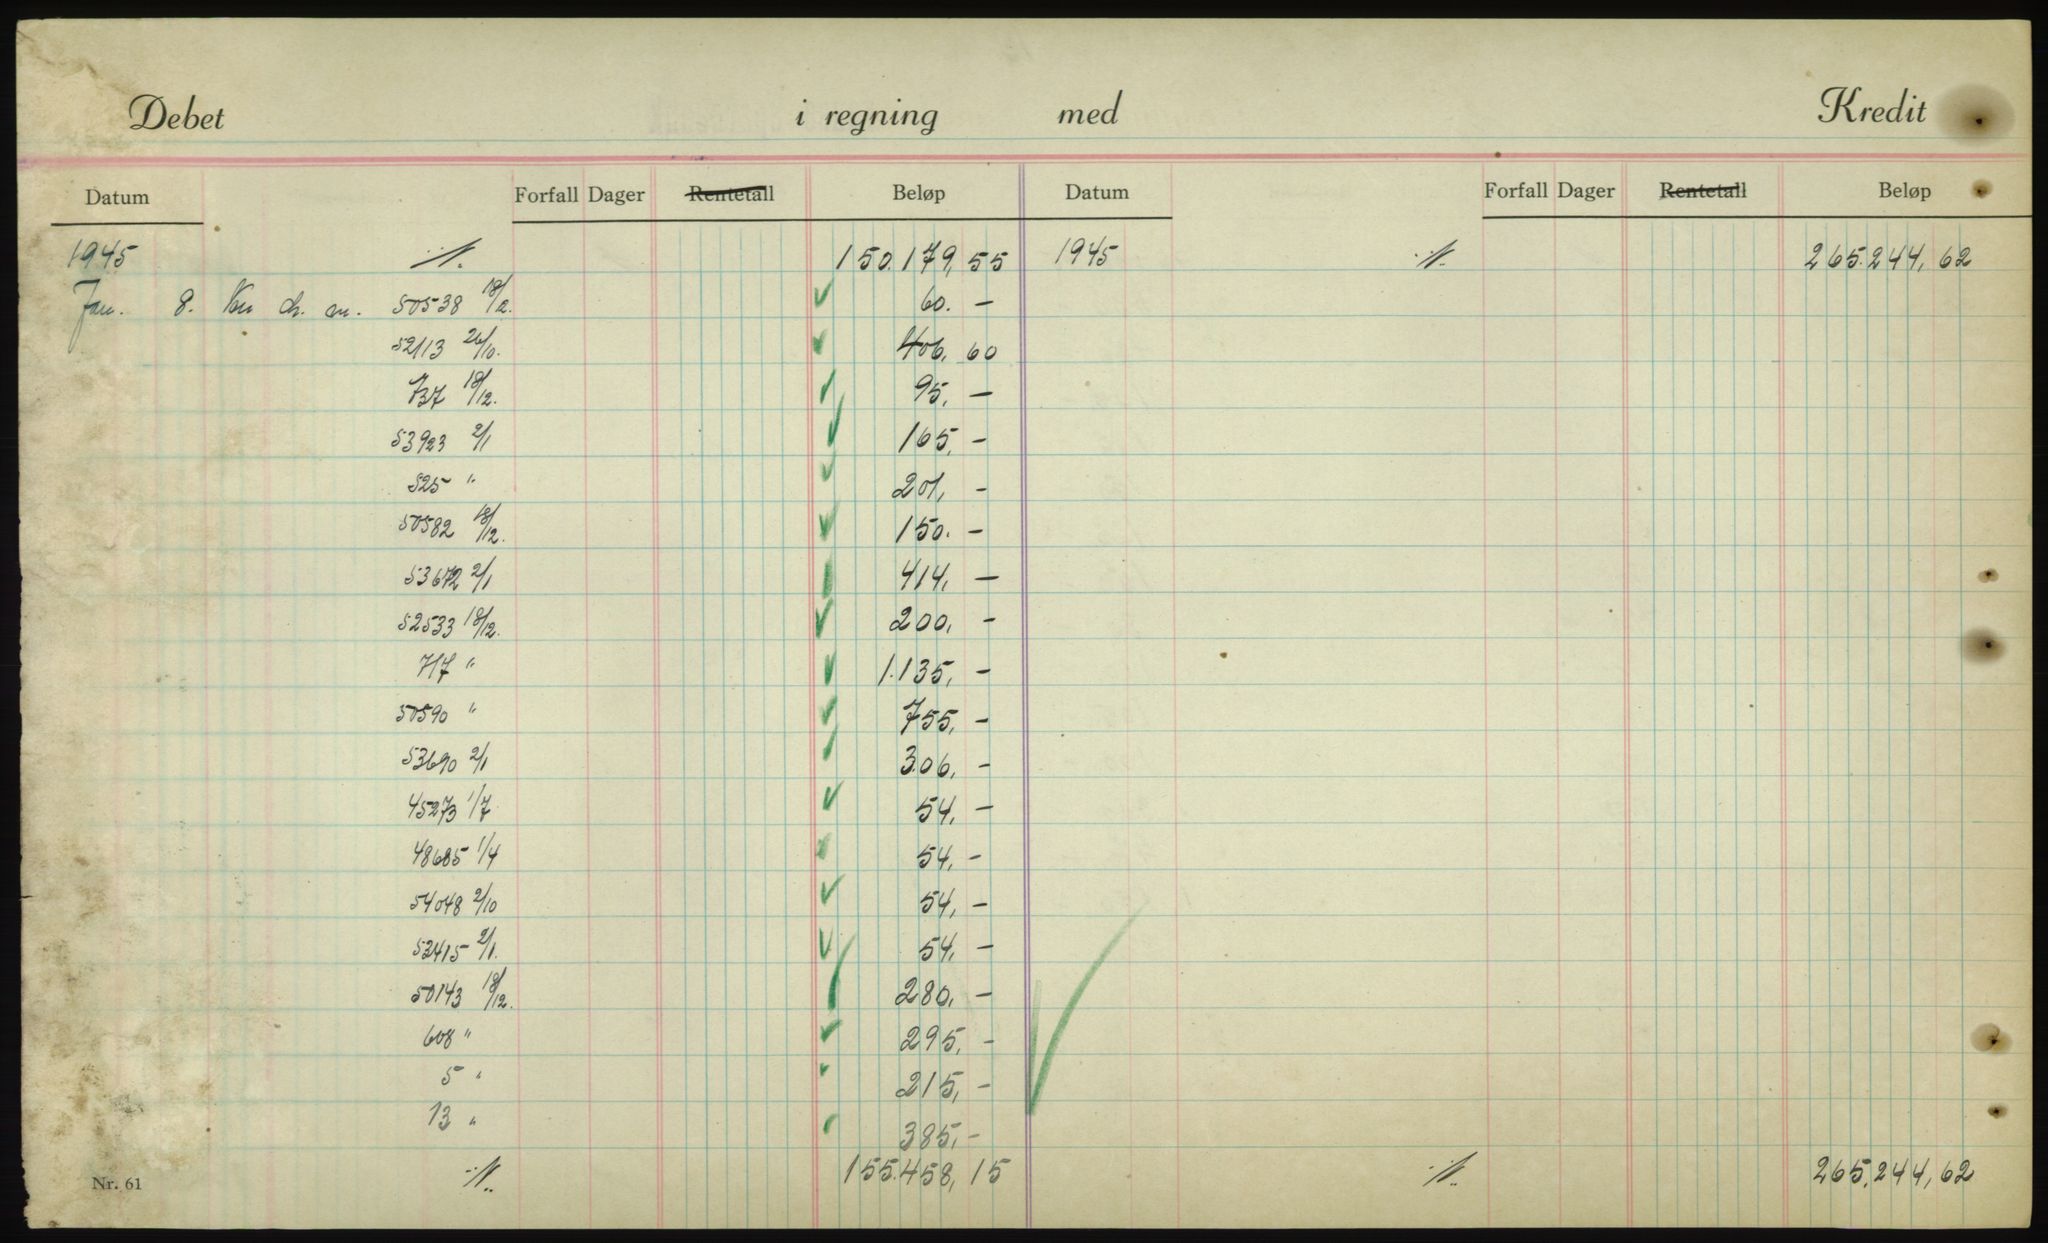 Debet i regning med Kredit
Datum Forfall Dager Rentetall Beløp Datum Forfall Dager Rentetall Beløp
1945 ·/·. 150.179,55 1945 ·/·. 265.244,62
Jan. 8. 50538 18/12. 60. —
52113 26/10. 406,60
737 18/12. 95, —
53923 2/1 165, —
525 " 201, —
50582 18/12. 150. —
53672 2/1 414, —
52533 18/12. 200, —
717 " 1.135, —
50590 " 755, —
53690 2/1 306, —
45273 1/7 54, —
48685 1/4 54, —
54048 2/10 54, —
52415 2/1. 54, —
50143 18/12. 280, —
608 " 295, —
5 " 215, —
13 " 385, —
Nr. 61 ·/·. 155.458,15 ·/·. 265.244,62